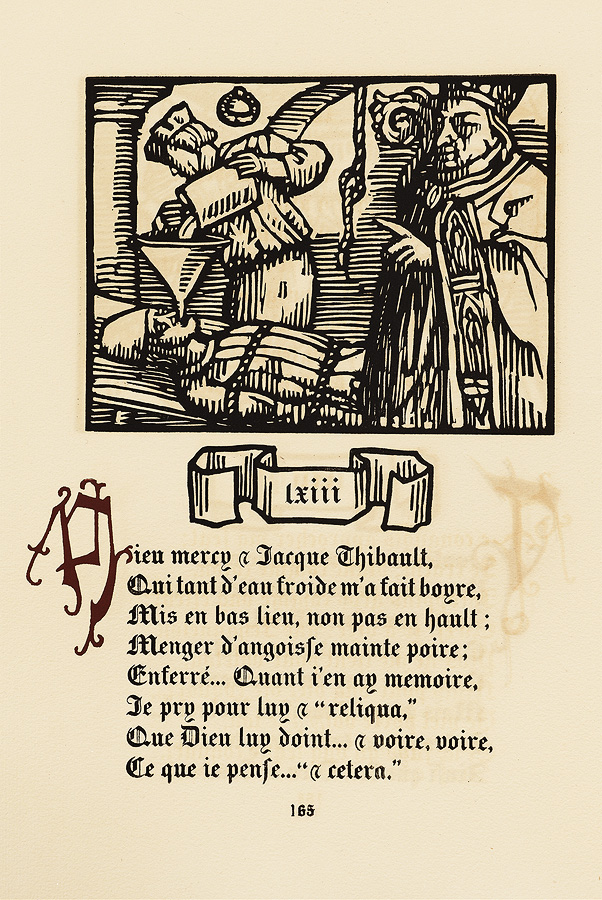 lxiii
Dieu mercy & Jacque Thibault,
Qui tant d'eau froide m'a fait boyre,
Mis en bas lieu, non pas en hault ;
Menger d'angoisſe mainte poire ;
Enferré... Quant i'en ay memoire,
Je pry pour luy & “reliqua,”
Que Dieu luy doint... & voire, voire,
Ce que ie penſe...“& cetera.”
165